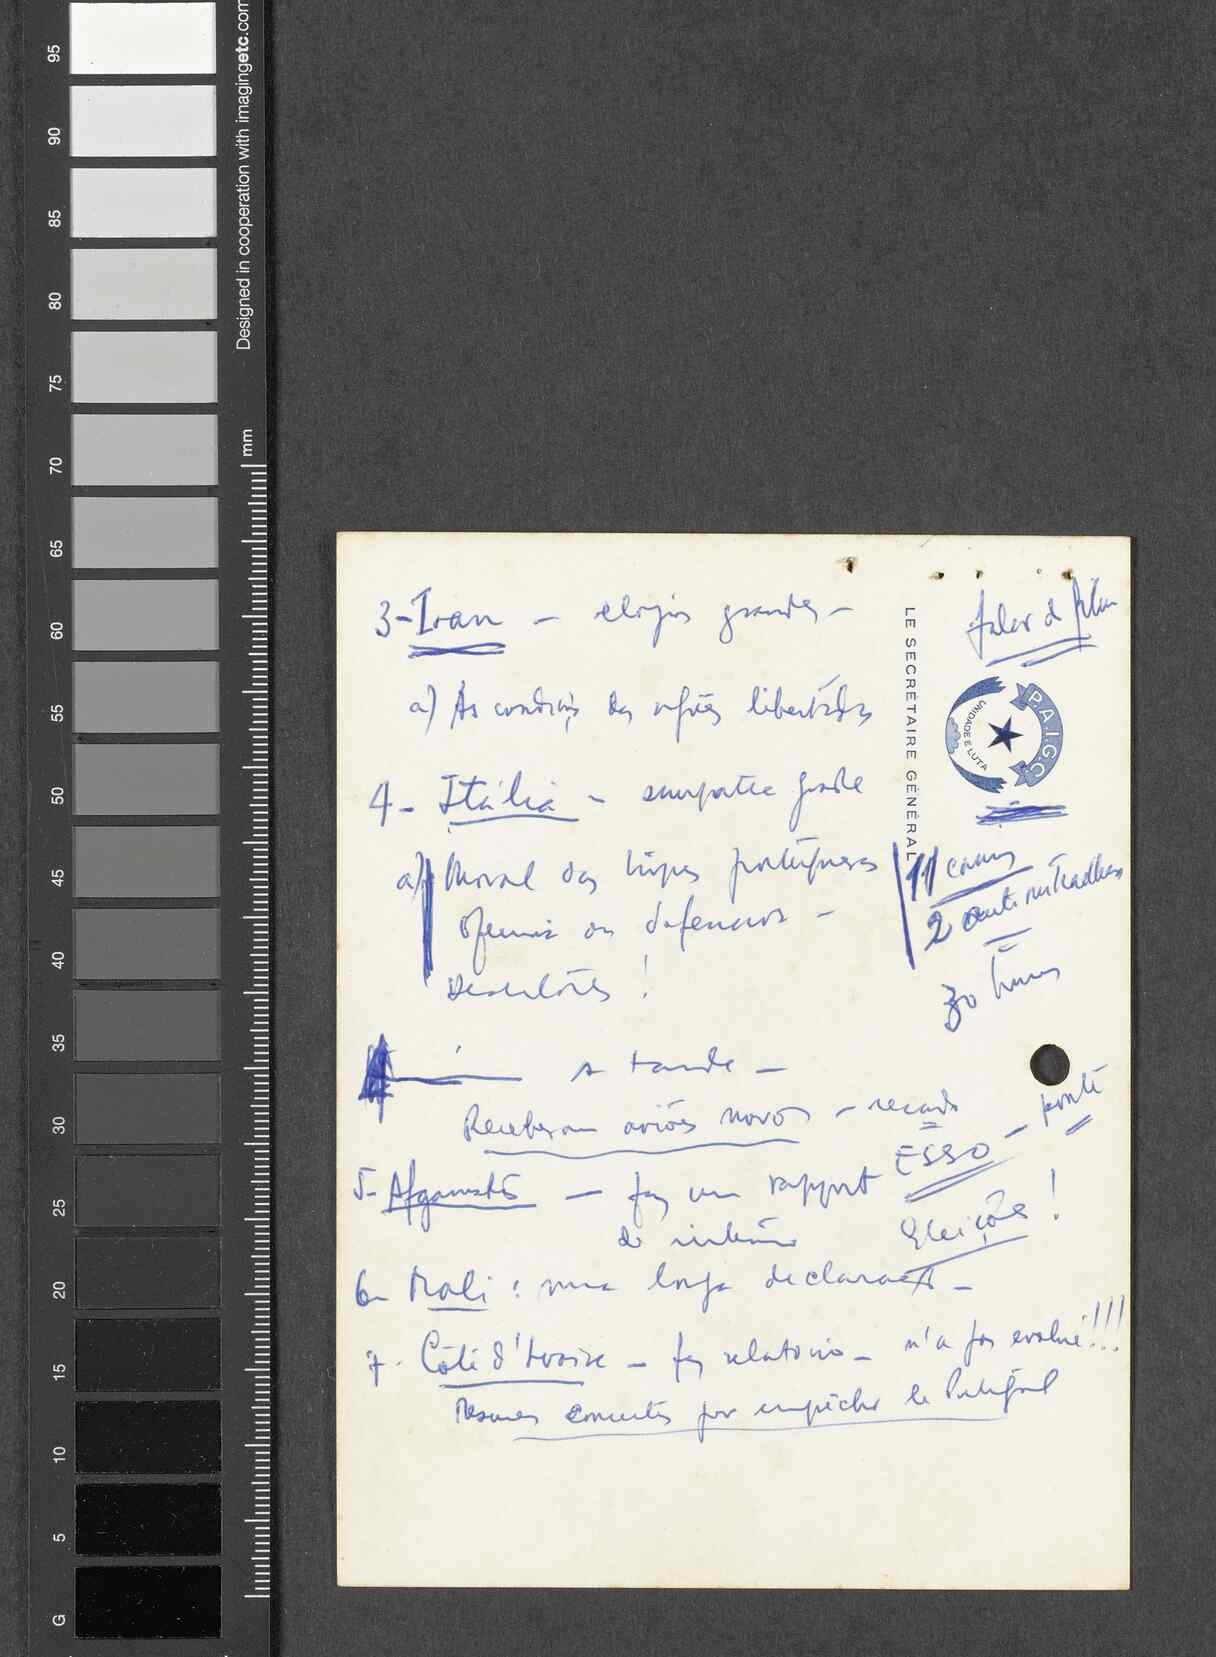 95
90
85
80
75
70
65
60
55
50
45
40
35
30
25
20
15
10
5
G
Designed in cooperation with imagingetc.com
mm
LE SECRÉTAIRE GÉNÉRAL
P.A.I.G.C.
UNIDADE E LUTA
falar d
3-Iran - elogios grandes -
a) As condições das regiões libertadas
4- Itália - simpatia grande
a) Moral das tropas portuguesas
ofensiva ou defensiva -
Desertores !
11
2
30
a tarde -
Receberam aviões novos - recado
ESSO - ponte
5- Afganistão - faz um rapport
de
Eleições !
6- Mali : uma longa declaração -
7- Côte d'Ivoire - faz relatório - n'a pas evolué!!!
Mesures concretes par empêcher le Portugal